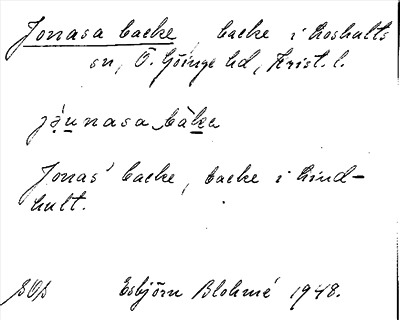 Jonasa backe, backe i Loshults
sn, Ö. Göinge hd, Krist. l.
jǫ́u̲nasa bàk̲e
Jonas' backe, backe i Kind-
hult.
SOs Esbjörn Blohmé 1948.